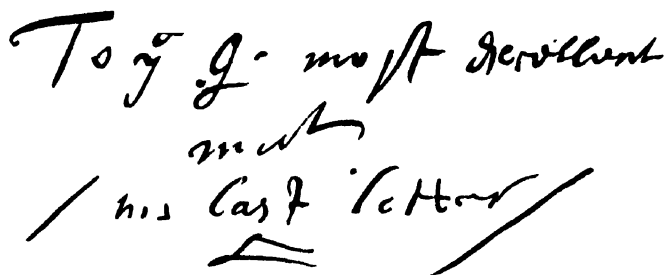 To yͤ .Q. most Excellent
/ his last letter /